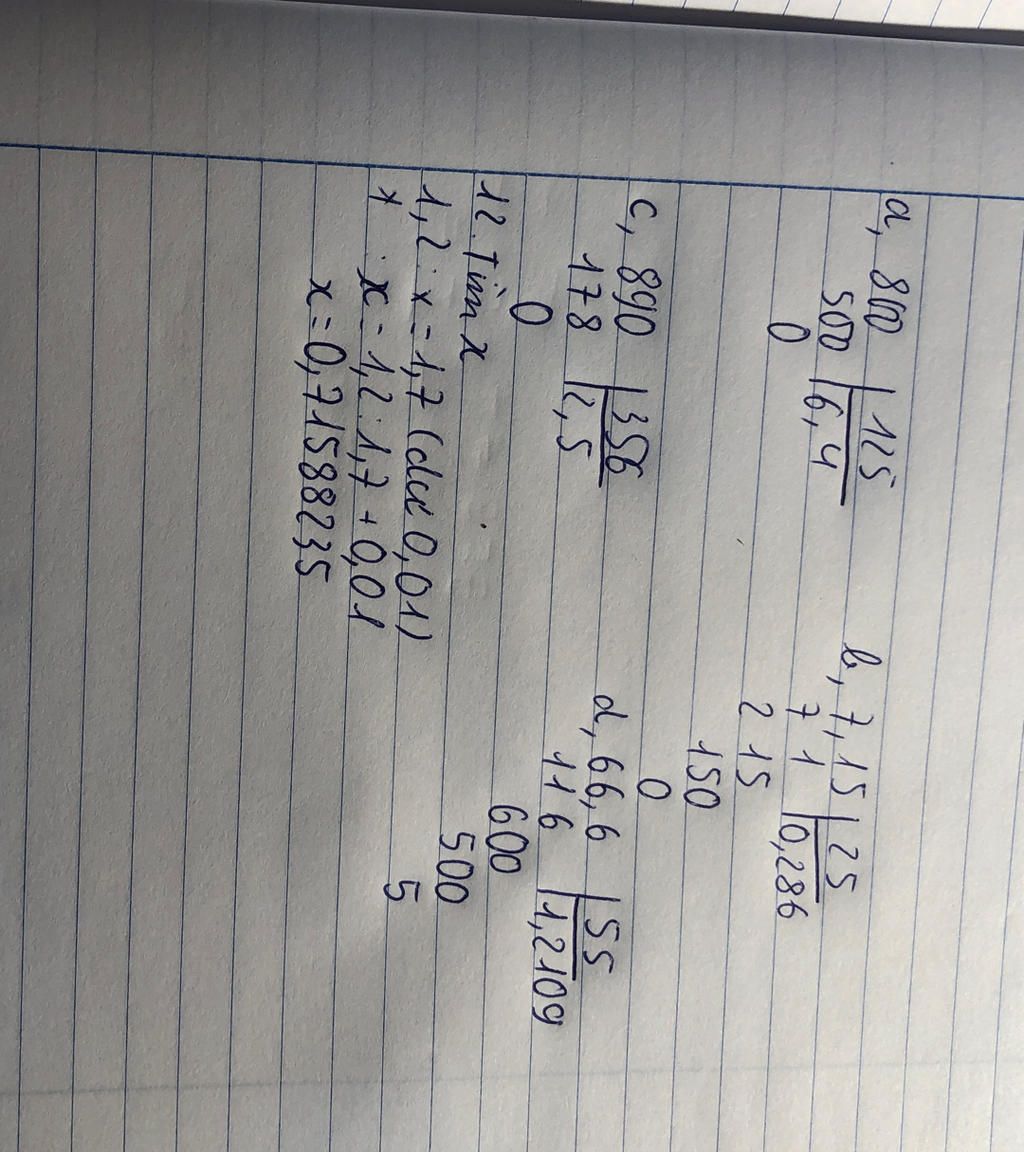 a, 800 125
500 6,4
0
b, 7,15 25
7 1 0,286
2 15
150
0
c, 890 356
178 2,5
0
d, 66,6 55
11 6 1,2109
600
500
5
12. Tìm x
1,2 : x = 1,7 (dư 0,01)
* : x = 1,2 : 1,7 + 0,01
x = 0,71588235